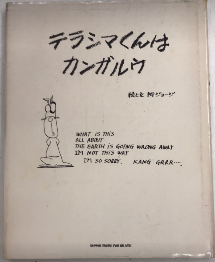 テラシマくんは
カンガルウ
絵と文 阿部ジョージ
WHAT IS THIS
ALL ABOUT
THE EARTH IS GOING WRONG AWAY
I'M NOT THIS WAY
I'M SO SORRY, KANG GRRR....